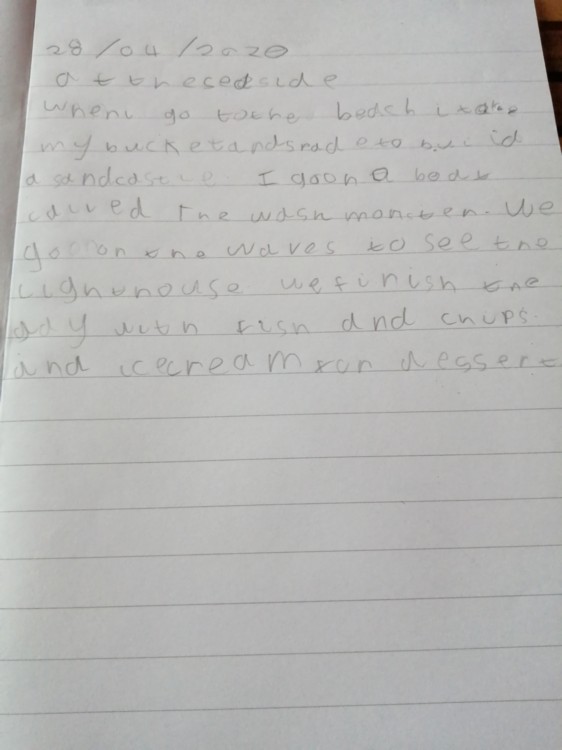 28/04/2020
at the seaside
when i go to the beach i take
my bucket and spade to build
a sandcastle. I go on a boat
called The wash monster. We
go on the waves to see the
lighthouse we finish the
ady with fish and chups.
and icecream for dessert